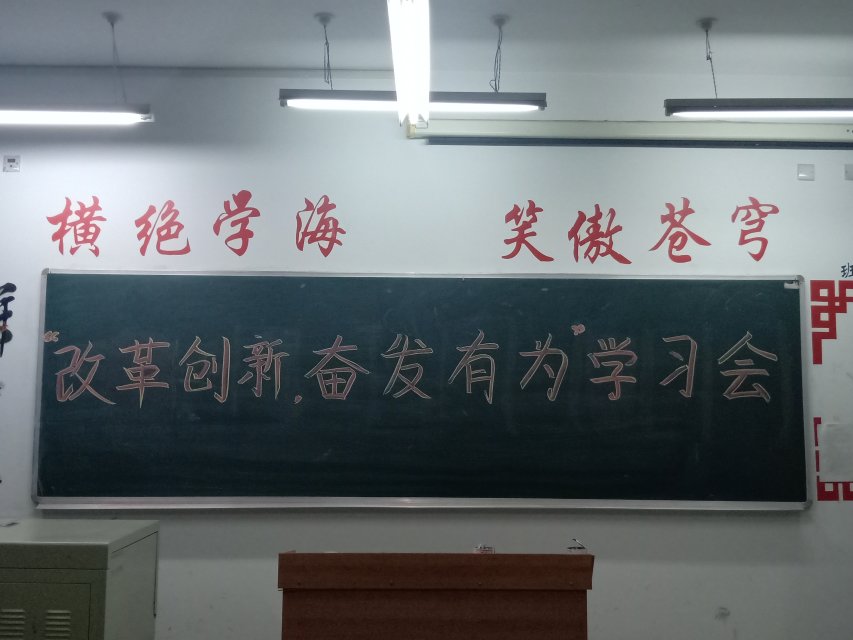 横绝学海 笑傲苍穹
班
“改革创新,奋发有为”学习会